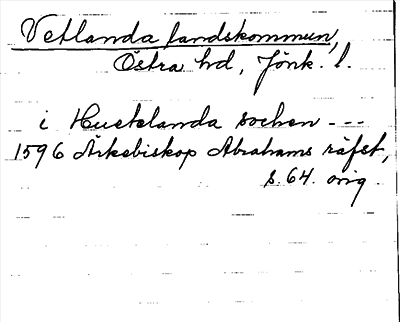 Vetlanda landskommun,
Östra hd, Jönk. l.
i Huetelanda sochen ---
1596 Ärkebiskop Abrahams räfst,
s. 64. orig.